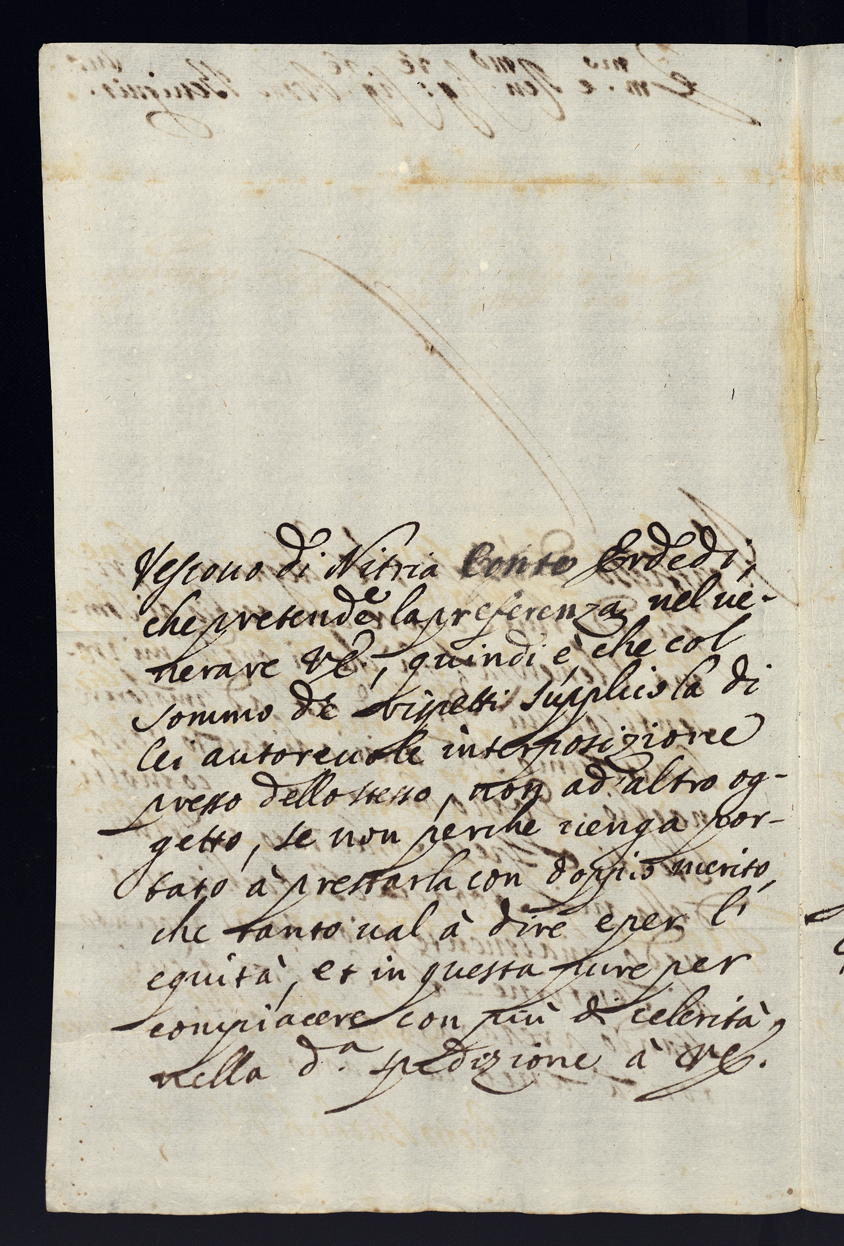 Vescouo di Nitria Conte Erdedi,
che pretende la preferenza nel ue-
nerare VE, quindi è, che col
sommo de rispetti supplico la di
lei autoreuole interposizione
presso dello stesso, non ad altro og-
getto, se non perche uenga por-
tato à prestarla con doppio merito,
che tanto ual à dire e per l'
equità, et in questa pure per
compiacere con più di celerità
nella d.ª spedizione à VE.